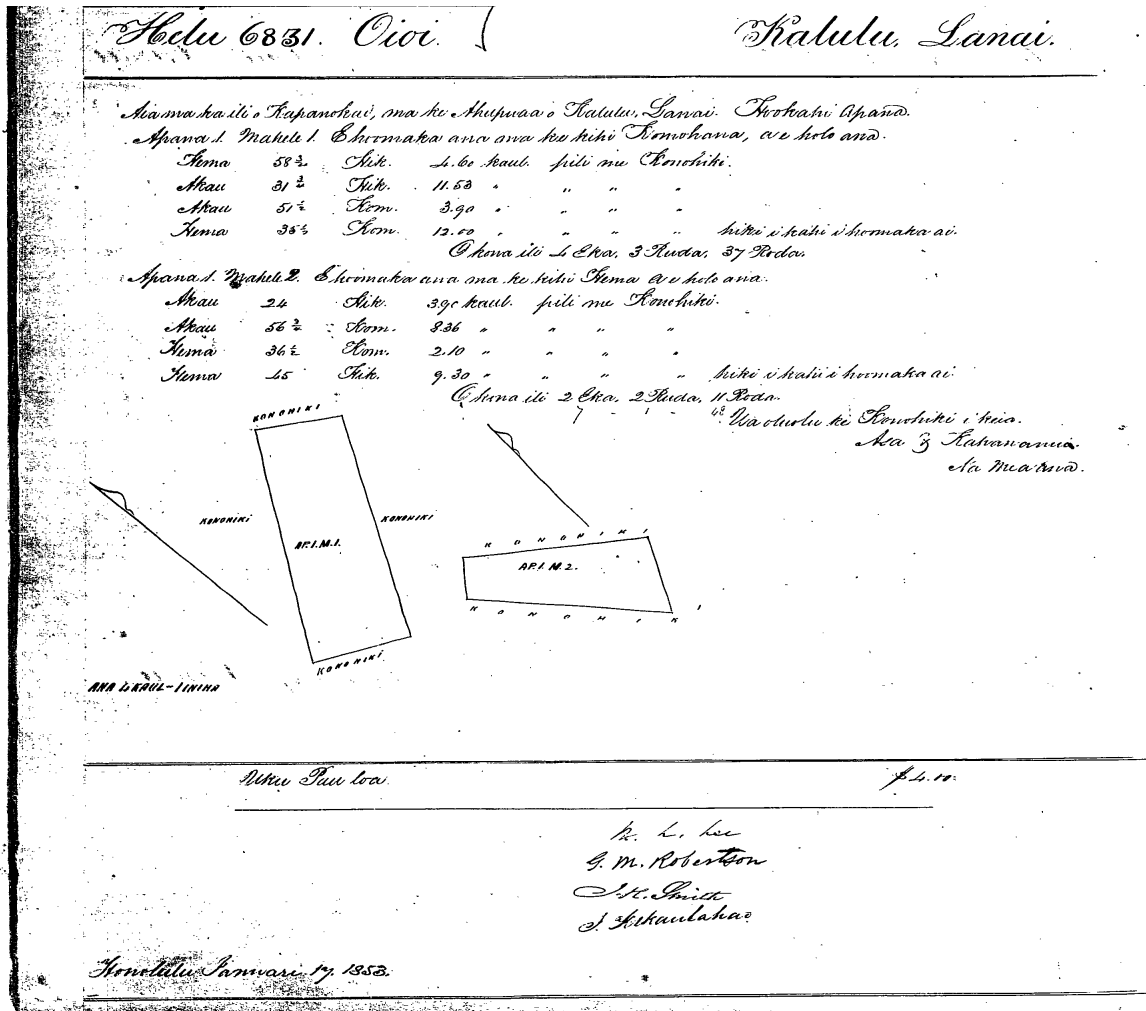 Helu 6831. Oioi. Kalulu, Lanai.
Aia ma ka ili o Kapanokai, ma ke Ahupuaa o Kalulu, Lanai. Hookahi Apana.
Apana 1. Mahele 1. E hoomaka ana ma ke kihi Komohana, a e holo ana.
Hema 58 3/4 Hik. 4.60 kaul. pili me Konohiki.
Akau 31 3/4 Hik. 11.53 " " " "
Akau 51 1/2 Kom. 3.90 " " " "
Hema 35 1/2 Kom. 12.00 " " " " hiki i kahi i hoomaka ai.
O kona ili 4 Eka, 3 Ruda, 37 Roda.
Apana 1. Mahele 2. E hoomaka ana ma ke kihi Hema a e holo ana.
Akau 24 Hik. 3.90 kaul. pili me Konohiki.
Akau 56 3/4 Kom. 8.36 " " " "
Hema 36 1/2 Kom. 2.10 " " " "
Hema 45 Hik. 9.30 " " " " hiki i kahi i hoomaka ai.
O kona ili 2 Eka, 2 Ruda, 11 Roda.
Ua oluolu ke Konohiki i keia.
Asa
Na mea ana.
KONOHIKI
KONOHIKI
AP.1.M.1.
KONOHIKI
KONOHIKI
KONOHIKI
AP.1.M.2.
KONOHIKI
ANA 4 KAUL-1 INIHA
Uku Pau loa. $4.00.
W. L. Lee
G. M. Robertson
J. H. Smith
J. Kekaulahao
Honolulu Januari 17. 1853.